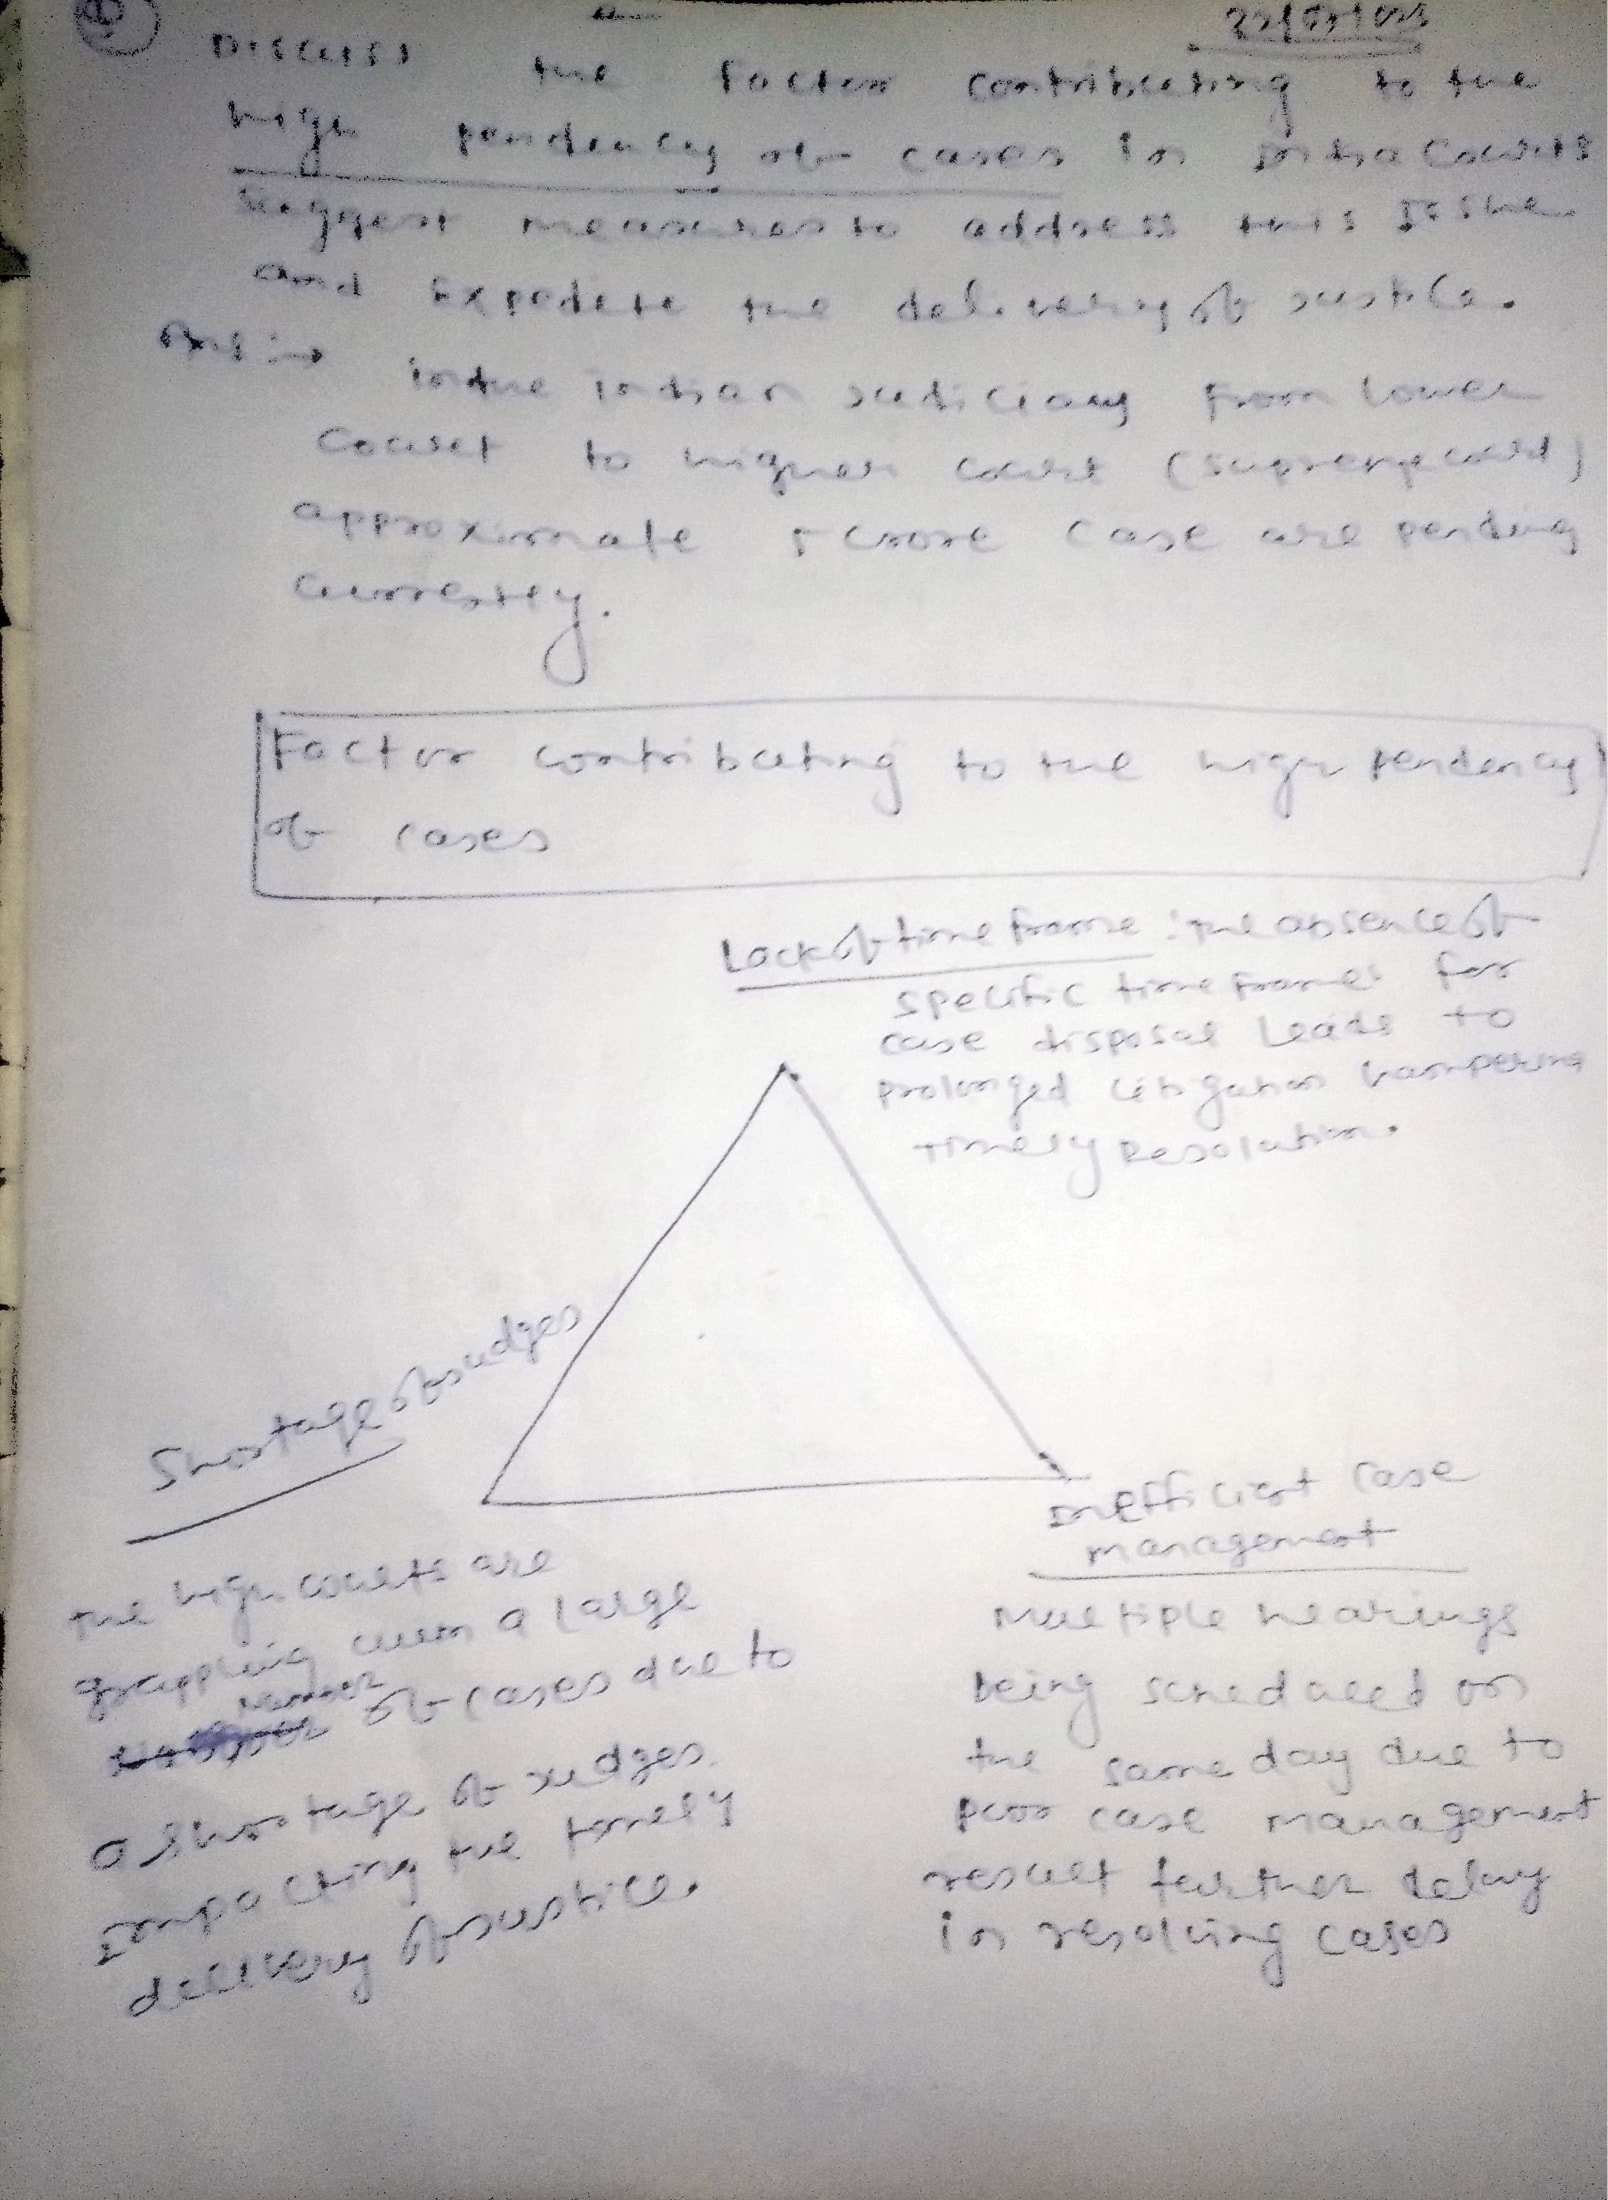 Discuss the factor contributing to the
high pendency of cases in India Courts
Suggest measures to address this Issue
and Expedite the delivery of justice.
Ans :→ in the indian judiciary from lower
Court to higher court (supreme court)
approximate 5 crore case are pending
currently.
Factor contributing to the high pendency
of cases
Lack of time frame : the absence of
specific time frames for
case disposal leads to
prolonged litigation hampering
timely Resolution.
Shortage of judges
the high courts are
grappling with a large
number of cases due to
a shortage of judges.
Impacting the timely
delivery of justice.
Inefficient case
management
Multiple hearings
being scheduled on
the same day due to
poor case management
result further delay
in resolving cases